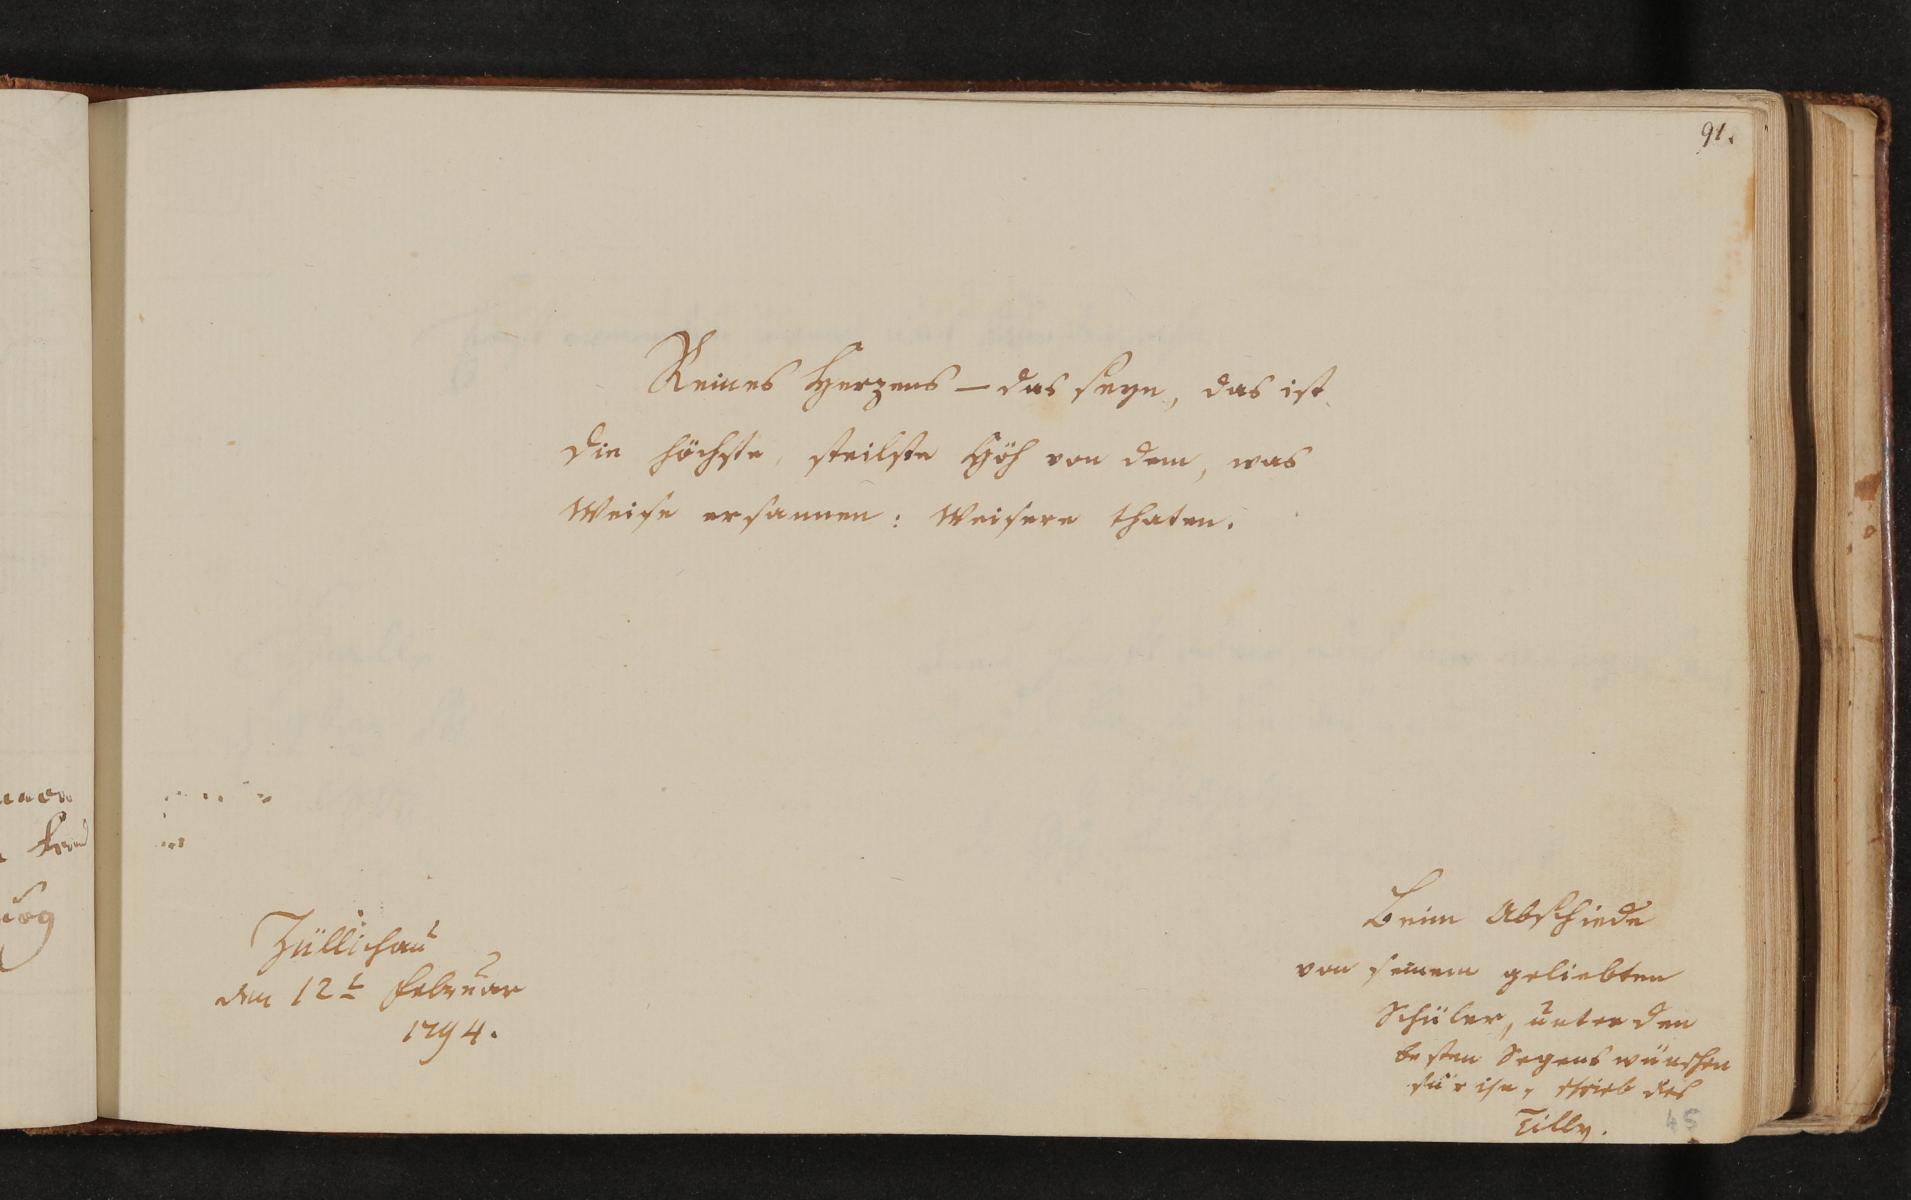 91.
Reines Herzens – das seyn, das ist
die höchste, steilste Höh von dem, was
Weise ersannen: Weisere thaten.
Züllichau
den 12t Februar
1794.
Beim Abschiede
von seinem geliebten
Schüler, unter den
besten Segenswünschen
für ihn, schrieb dies
Tilly.
45